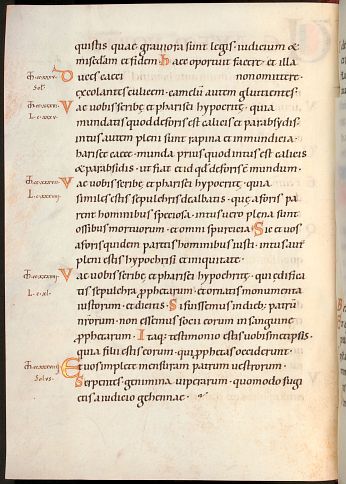 quistis quae grauiora sunt legis · iudicium &
misedam et fidem · haec oportuit facere · et illa
Duces caeci non omittere ·
excolantes culicem · camelum autem glutientes ·
Vae uobis scribę et pharisei hypocritę · quia
mundatis quod de foris est calicis et parabsydis ·
intus autem pleni sunt rapina et inmundicia ·
harisee caece · munda prius quod intus est calicis
& parabsidis · ut fiat et id quod de foris ē mundum ·
Vae uobis scribę et pharisei hypocritę · quia
similes estis sepulchris dealbatis · quę a foris pa
rent hominibus speciosa · intus uero plena sunt
ossibus mortuorum · et omni spurcicia · Sic et uos
a foris quidem paretis hominibus iusti · intus aut
pleni estis hypochrisi et iniquitate ·
Vae uobis scribę et pharisei hypochritę · qui ędifica
tis sepulchra prophetarum · et ornatis monumenta
iustorum · et dicitis · Si fuissemus in dieb; patrū
nrōrum · non essemus socii eorum in sanguine
prophetarum · Itaq; testimonio estis uobismetipsis ·
quia filii estis eorum · qui prophetas occiderunt ·
Et uos implete mensuram patrum uestrorum ·
Serpentes · genimina uiperarum · quomodo fugi
etis a iudicio gehennae ·
Sol·